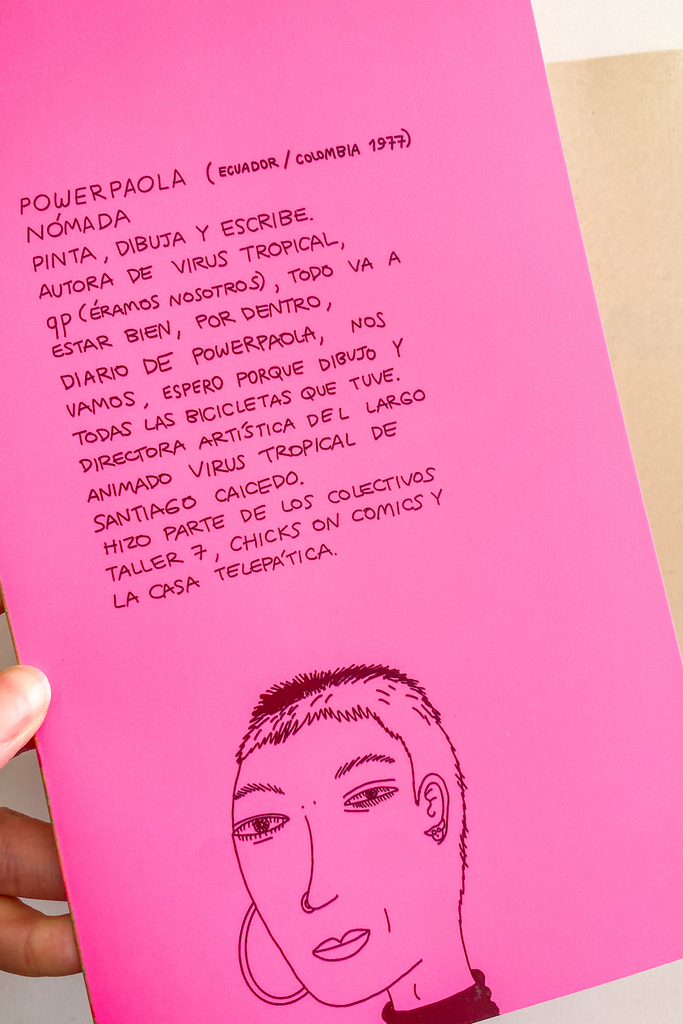 POWERPAOLA (ECUADOR / COLOMBIA 1977)
NÓMADA
PINTA, DIBUJA Y ESCRIBE.
AUTORA DE VIRUS TROPICAL,
qp (ÉRAMOS NOSOTROS), TODO VA A
ESTAR BIEN, POR DENTRO,
DIARIO DE POWERPAOLA, NOS
VAMOS, ESPERO PORQUE DIBUJO Y
TODAS LAS BICICLETAS QUE TUVE.
DIRECTORA ARTÍSTICA DEL LARGO
ANIMADO VIRUS TROPICAL DE
SANTIAGO CAICEDO.
HIZO PARTE DE LOS COLECTIVOS
TALLER 7, CHICKS ON COMICS Y
LA CASA TELEPÁTICA.